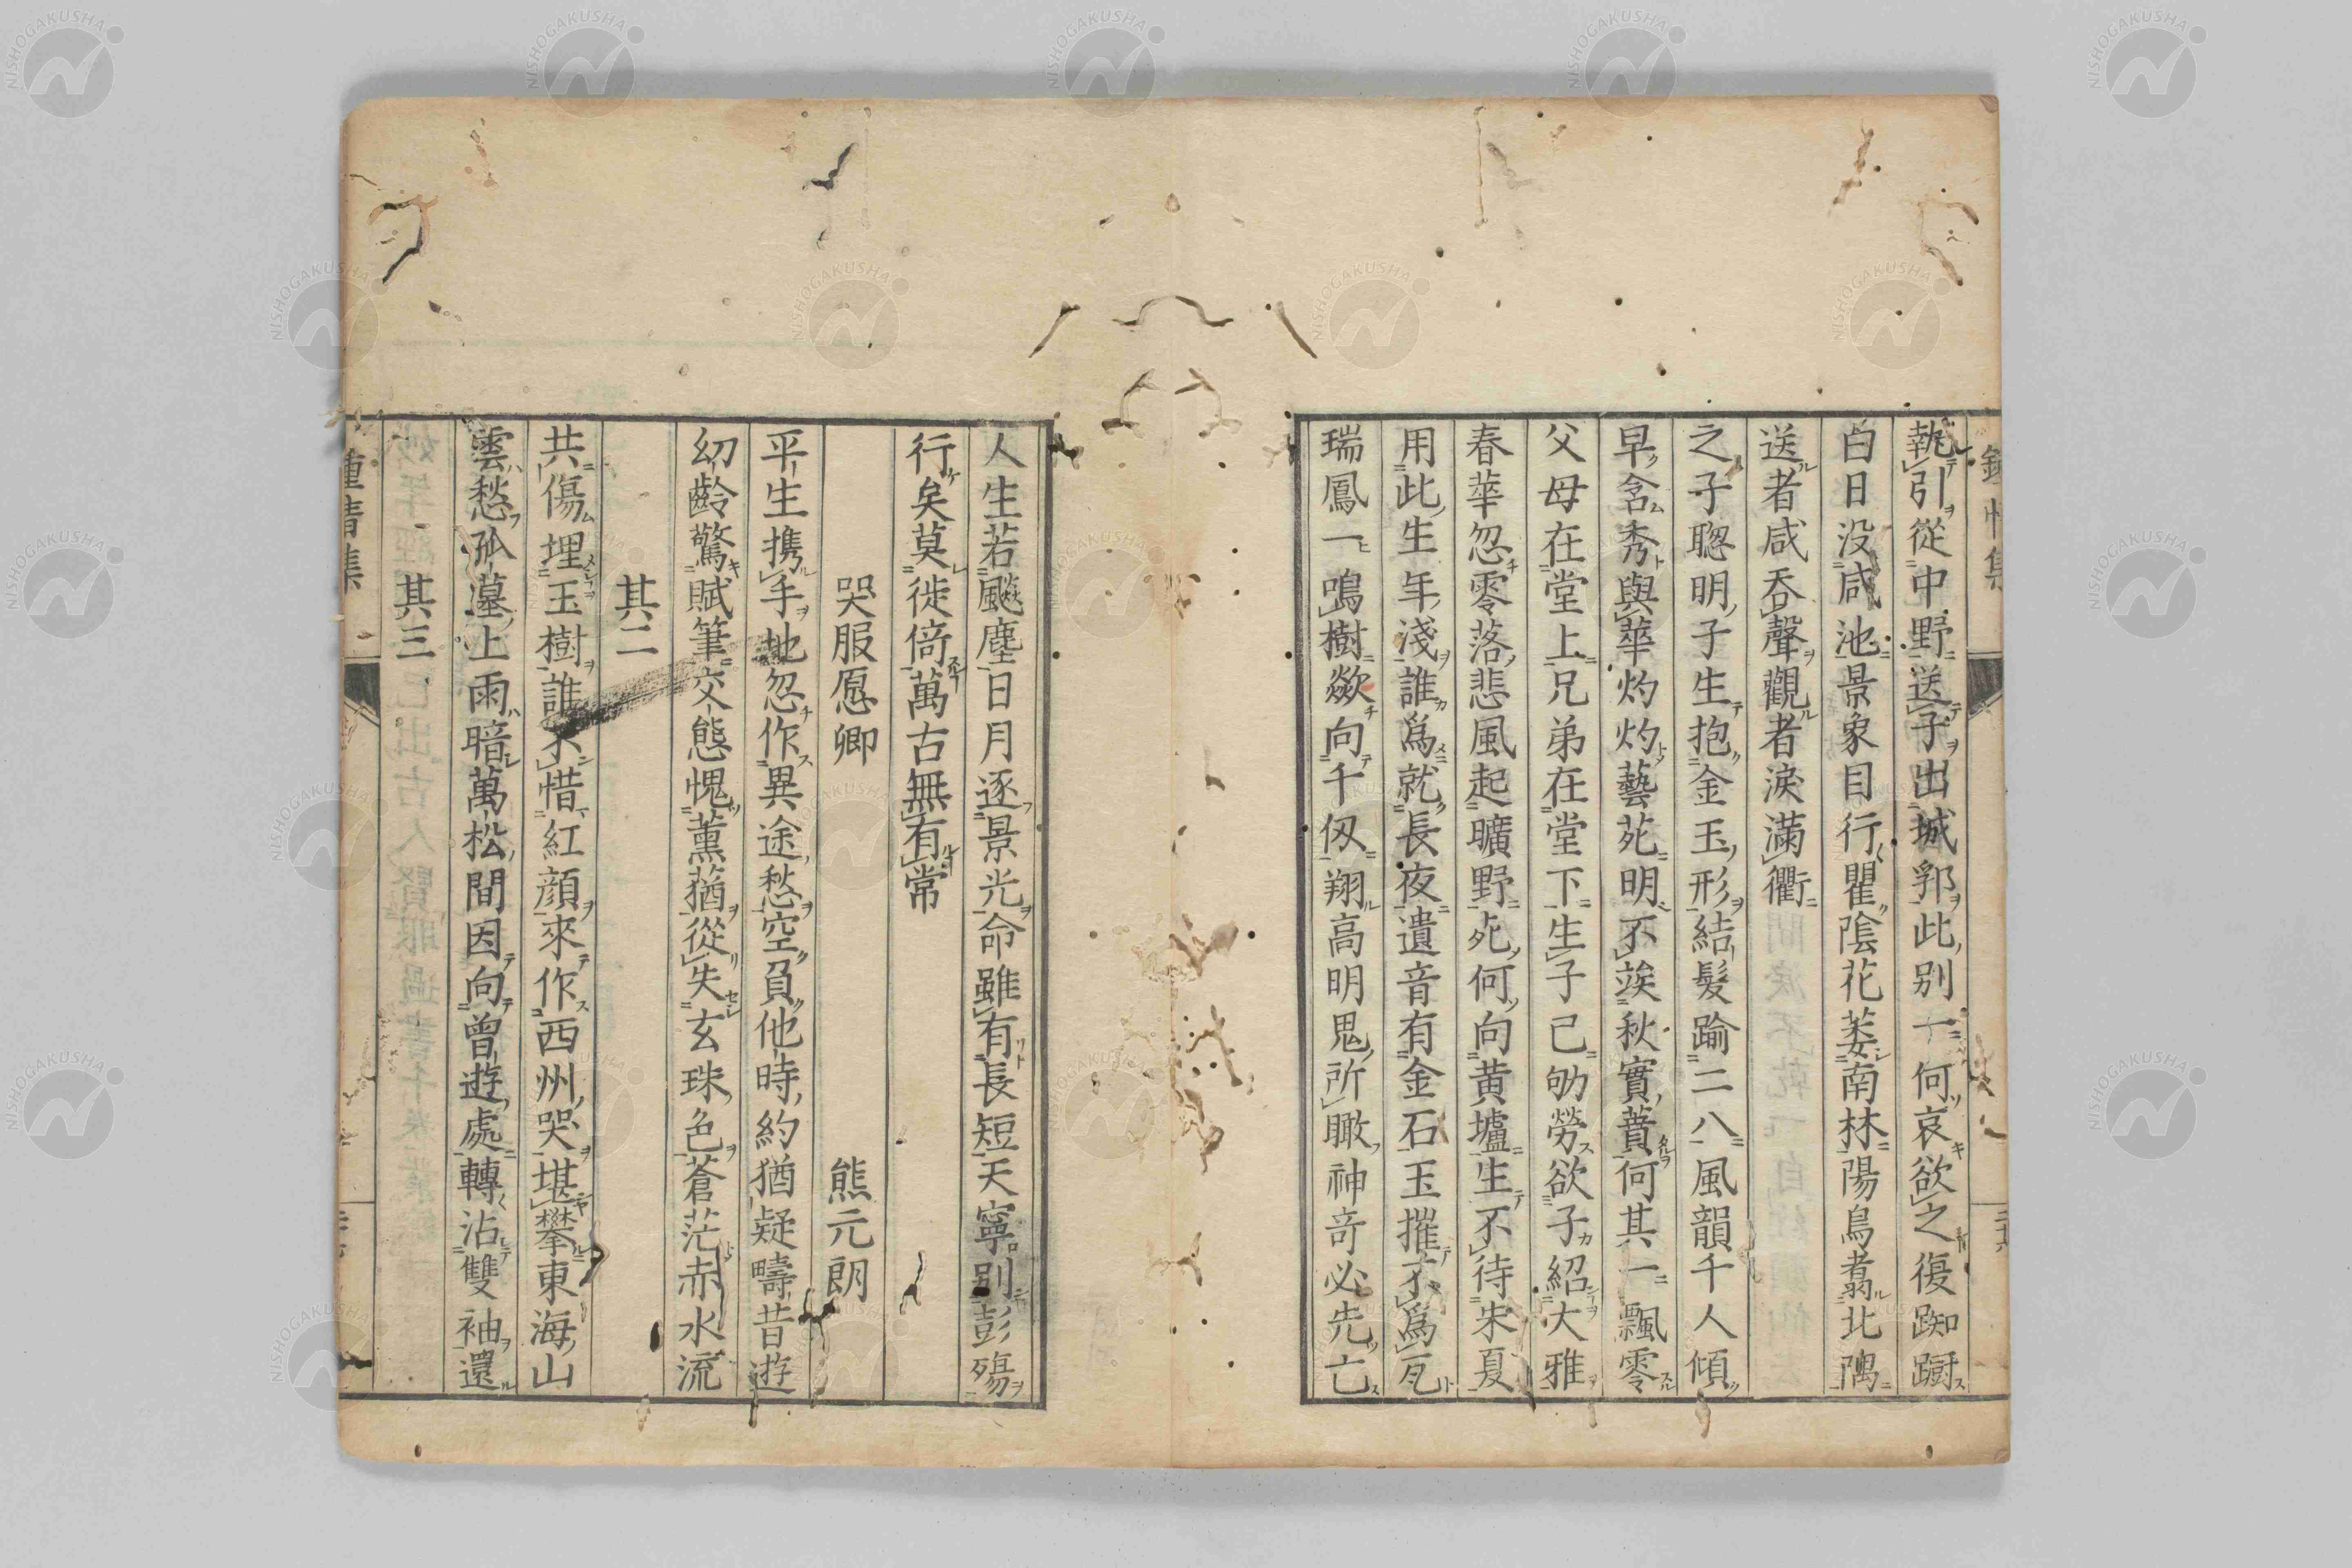 執引從中野送子出城郭此別一何哀欲之復踟蹰
白日没咸池景象目行瞿陰花萎南林陽鳥翥北隅
送者咸吞聲觀者淚滿衢
之子聰明子生抱金玉形結髮踰二八風韻千人傾
早含秀與華灼灼藝苑明不竢秋實蕡何其一飄零
父母在堂上兄弟在堂下生子已劬勞欲子紹大雅
春華忽零落悲風起曠野死何向黄壚生不待朱夏
用此生年淺誰爲就長夜遺音有金石玉摧不爲瓦
瑞鳳一鳴樹歘向千仭翔高明鬼所瞰神竒必先亡
人生若飈塵日月逐景光命雖有長短天寧別彭殤
行矣莫徙倚萬古無有常
哭服愿卿 熊元朗
平生携手地忽作異途愁空負他時約猶疑疇昔遊
幼齡驚賦筆交態愧薰蕕從失玄珠色蒼茫赤水流
其二
共傷埋玉樹誰不惜紅顔來作西州哭堪攀東海山
雲愁孤墓上雨暗萬松間因向曾遊處轉沾雙袖還
其三
鍾情集
NISHOGAKUSHA